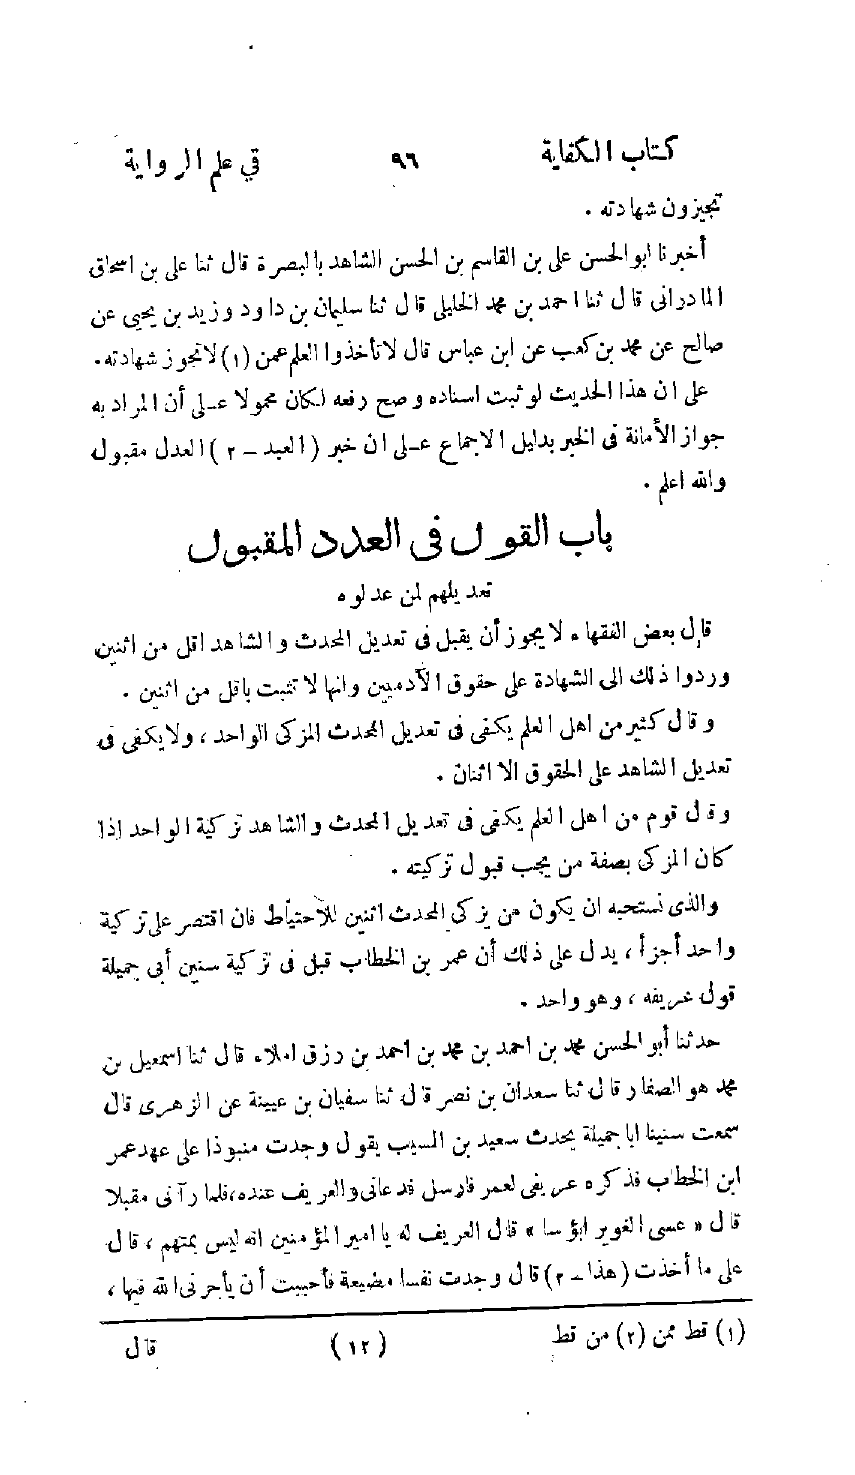 كتاب الكفاية ٩٦ في علم الرواية
تجيزون شهادته .
أخبرنا ابو الحسن على بن القاسم بن الحسن الشاهد بالبصرة قال ثنا على بن اسحاق
المادرانى قال ثنا احمد بن محمد الخليلى قال ثنا سليمان بن داود وزيد بن يحيى عن
صالح عن محمد بن كعب عن ابن عباس قال لا تأخذوا العلم عمن (١) لا تجوز شهادته.
على ان هذا الحديث لو ثبت اسناده وصح رفعه لكان محمولا على أن المراد به
جواز الأمانة فى الخبر بدليل الاجماع على ان خبر (العبد - ٢) العدل مقبول
والله اعلم .
باب القول فى العدد المقبول
تعديلهم لمن عدلوه
قال بعض الفقهاء لا يجوز أن يقبل فى تعديل المحدث والشاهد اقل من اثنين
وردوا ذلك الى الشهادة على حقوق الآدميين وانها لا تثبت باقل من اثنين .
وقال كثير من اهل العلم يكفى فى تعديل المحدث المزكى الواحد ، ولا يكفى فى
تعديل الشاهد على الحقوق الا اثنان .
وقال قوم من اهل العلم يكفى فى تعديل المحدث والشاهد تزكية الواحد إذا
كان المزكى بصفة من يجب قبول تزكيته .
والذى نستحبه ان يكون من يزكى المحدث اثنين للأحتياط فان اقتصر على تزكية
واحد أجزأ ، يدل على ذلك أن عمر بن الخطاب قبل فى تزكية سنين أبى جميلة
قول عريفه ، وهو واحد .
حدثنا أبو الحسن محمد بن احمد بن محمد بن احمد بن رزق املاء قال ثنا اسمعيل بن
محمد هو الصفار قال ثنا سعدان بن نصر قال ثنا سفيان بن عيينة عن الزهرى قال
سمعت سنينا ابا جميلة يحدث سعيد بن المسيب يقول وجدت منبوذا على عهد عمر
ابن الخطاب فذكره عريفى لعمر فارسل فدعانى والعريف عنده، فلما رآنى مقبلا
قال « عسى الغوير ابؤسا » قال العريف له يا امير المؤمنين انه ليس بمتهم ، قال
على ما أخذت (هذا - ٢) قال وجدت نفسا مضيعة فأحببت أن يأجرنى الله فيها ،
(١) قط ممن (٢) من قط (١٢) قال